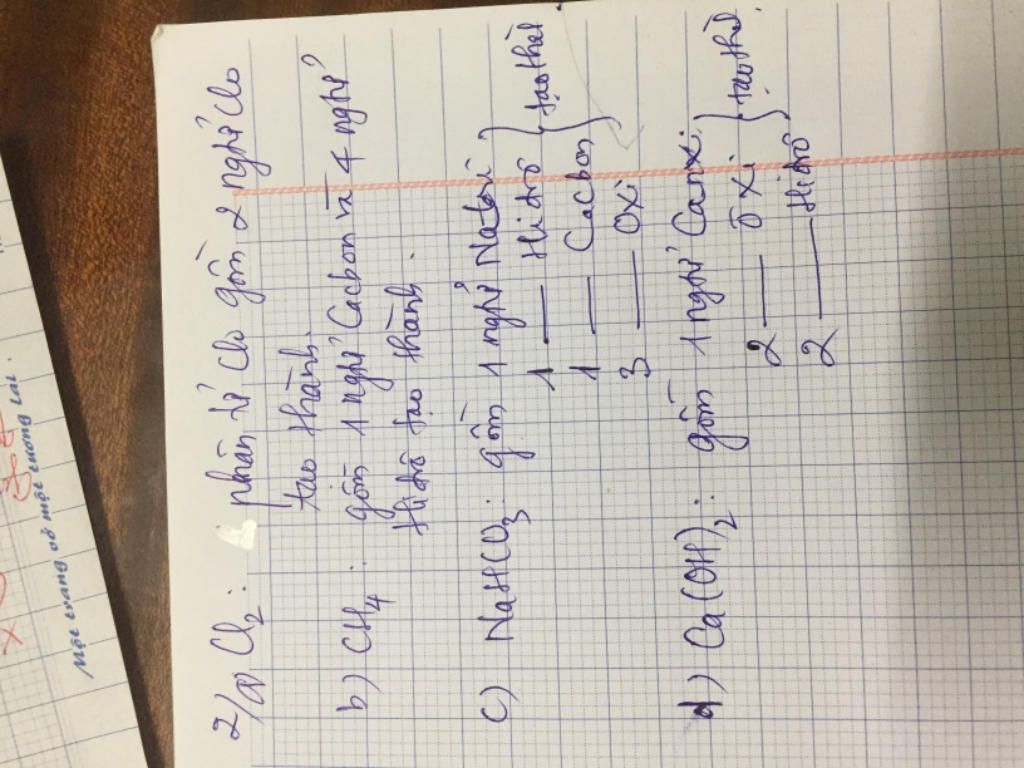 2/a) Cl2 : phân tử Clo gồm 2 ngtử Clo
tạo thành.
b) CH4 : gồm 1 ngtử Cacbon và 4 ngtử
Hiđrô tạo thành.
c) NaHCO3 : gồm 1 ngtử Natri
1 — Hiđrô
1 — Cacbon
3 — Oxi
} tạo thành
d) Ca(OH)2 : gồm 1 ngtử Canxi
2 — Oxi
2 — Hiđrô
} tạo thành
Một trang vở một tương lai